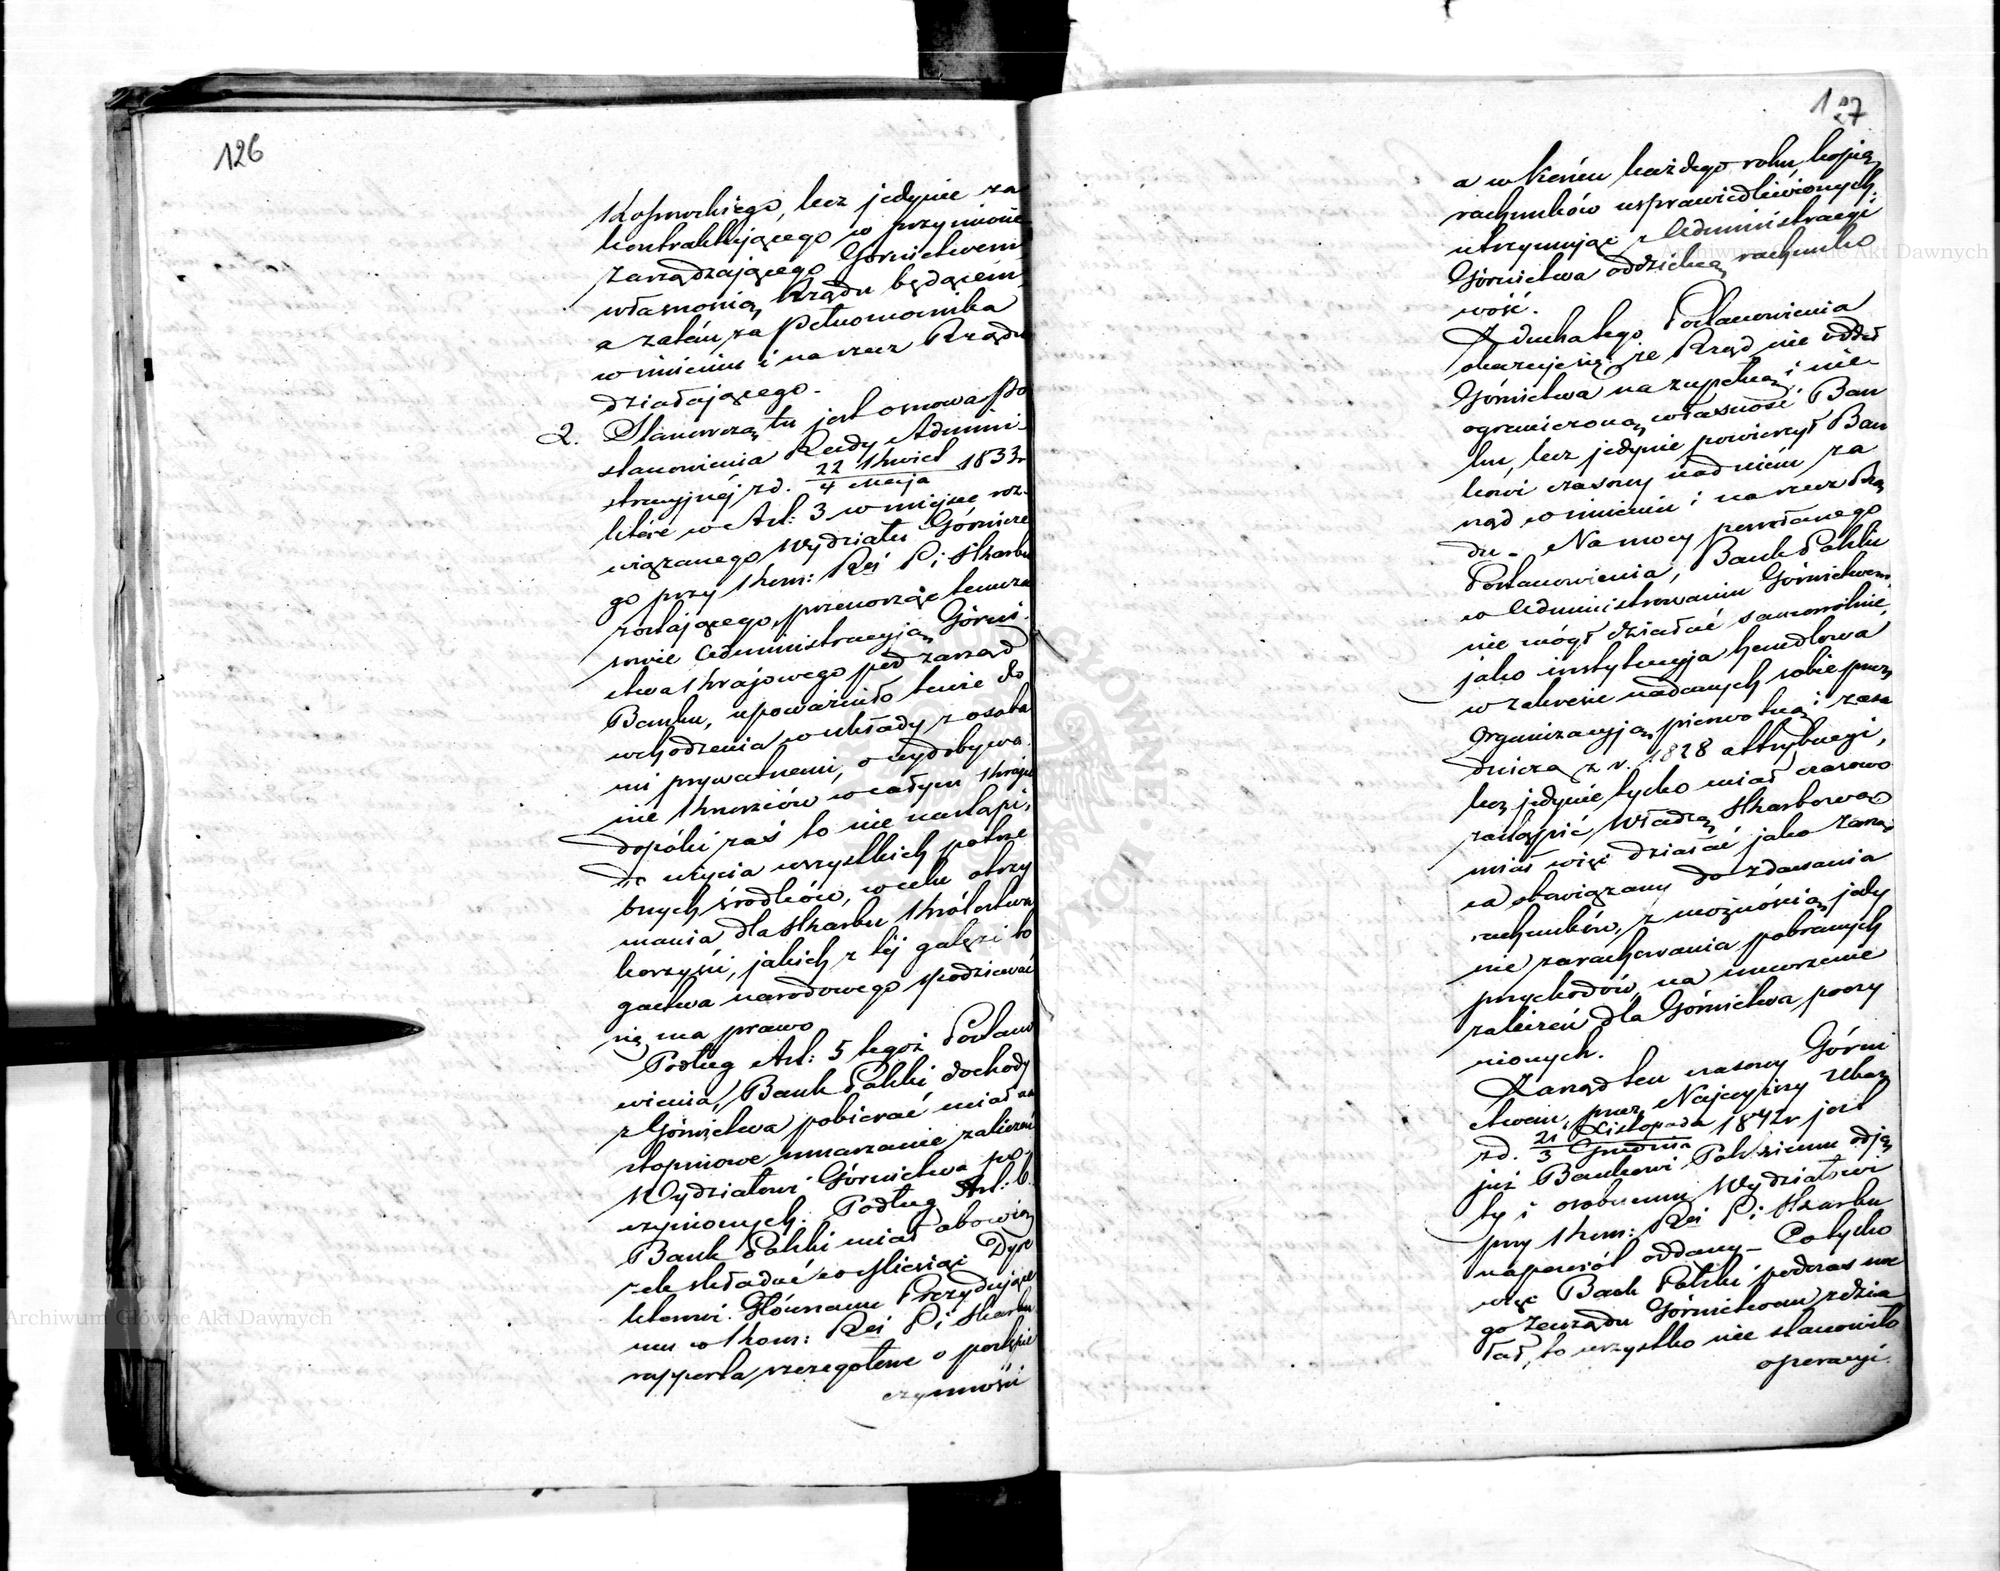 126
Kossowskiego, lecz jedynie za
kontraktującego w przymiocie
Zarządzającego Górnictwem
własnością Rządu będącem,
a zatem, za Pełnomocnika
w imieniu i na rzecz Rządu
działającego.
2. Stanowczą tu jest osnowa Po
stanowienia Rady Admini-
stracyjnéj z d. 22 Kwiet / 4 Maja 1833 r
które w Art: 3 w miejsce roz-
wiązanego Wydziału Górnicze
go przy Kom: Rei P: i Skarbu
zostającego, przenosząc tymcza
sowie Administracyją Górni-
ctwa Krajowego pod zarząd
Banku, upoważniło tenże do
wchodzenia w układy z osoba
mi prywatnemi, o wydobywa
nie Kruszców w całym Kraju
dopóki zaś to nie nastąpi,
do użycia wszystkich potrze
bnych środków, w celu otrzy
mania dla Skarbu Królestwa
korzyści, jakich z téj gałęzi bo
gactwa narodowego spodziewać
się ma prawo
Podług Art: 5 tegoż Postano
wienia, Bank Polski dochody
z Górnictwa pobierać miał na
stopniowe umarzanie zaliczeń
Wydziałowi Górnictwa po-
czynionych. Podług Art: 6.
Bank Polski miał obowią
zek składać co Miesiąc Dyre
ktorowi Głównemu Prezydujące
mu w Kom: Rei P: i Skarbu
rapporta szczegółowe o postępie
czynności
127
a w końcu każdego roku kopią
rachunków usprawiedliwionych,
utrzymując z Administracyi
Górnictwa oddzielną rachunko
wość.
Z ducha tego Postanowienia
okazuje się, że Rząd nie oddał
Górnictwa na zupełną i nie-
ograniczoną własność Ban
ku, lecz jedynie powierzył Ban
kowi czasowy nad niém za
rząd w imieniu i na rzecz Rzą
du. Na mocy powołanego
Postanowienia, Bank Polski
w Administrowaniu Górnictwem,
nie mógł działać samowolnie,
jako instytucyja handlowa
w zakresie nadanych sobie przez
Organizacyją pierwotną i zasa
dniczą z r. 1828 attrybucyi,
lecz jedynie tylko miał czasowo
zastąpić Władzą Skarbową,
miał więc działać jako Zarząd
ca obowiązany do zdawania
rachunków, z możnością jedy
nie zarachowania pobranych
przychodów, na umorzenie
zaliczeń dla Górnictwa poczy
nionych.
Zarząd ten czasowy Górni
ctwem, przez Najwyższy Ukaz
z d. 21 Listopada / 3 Grudnia 1842 r jest
już Bankowi Polskiemu odję
ty i osobnemu Wydziałowi
przy Kom: Rei P: i Skarbu
napowrót oddany – Co tylko
więc Bank Polski podczas swe
go Zarządu Górnictwem zdzia
łał, to wszystko nie stanowiło
operacyi.
Archiwum Główne Akt Dawnych
Archiwum Główne Akt Dawnych